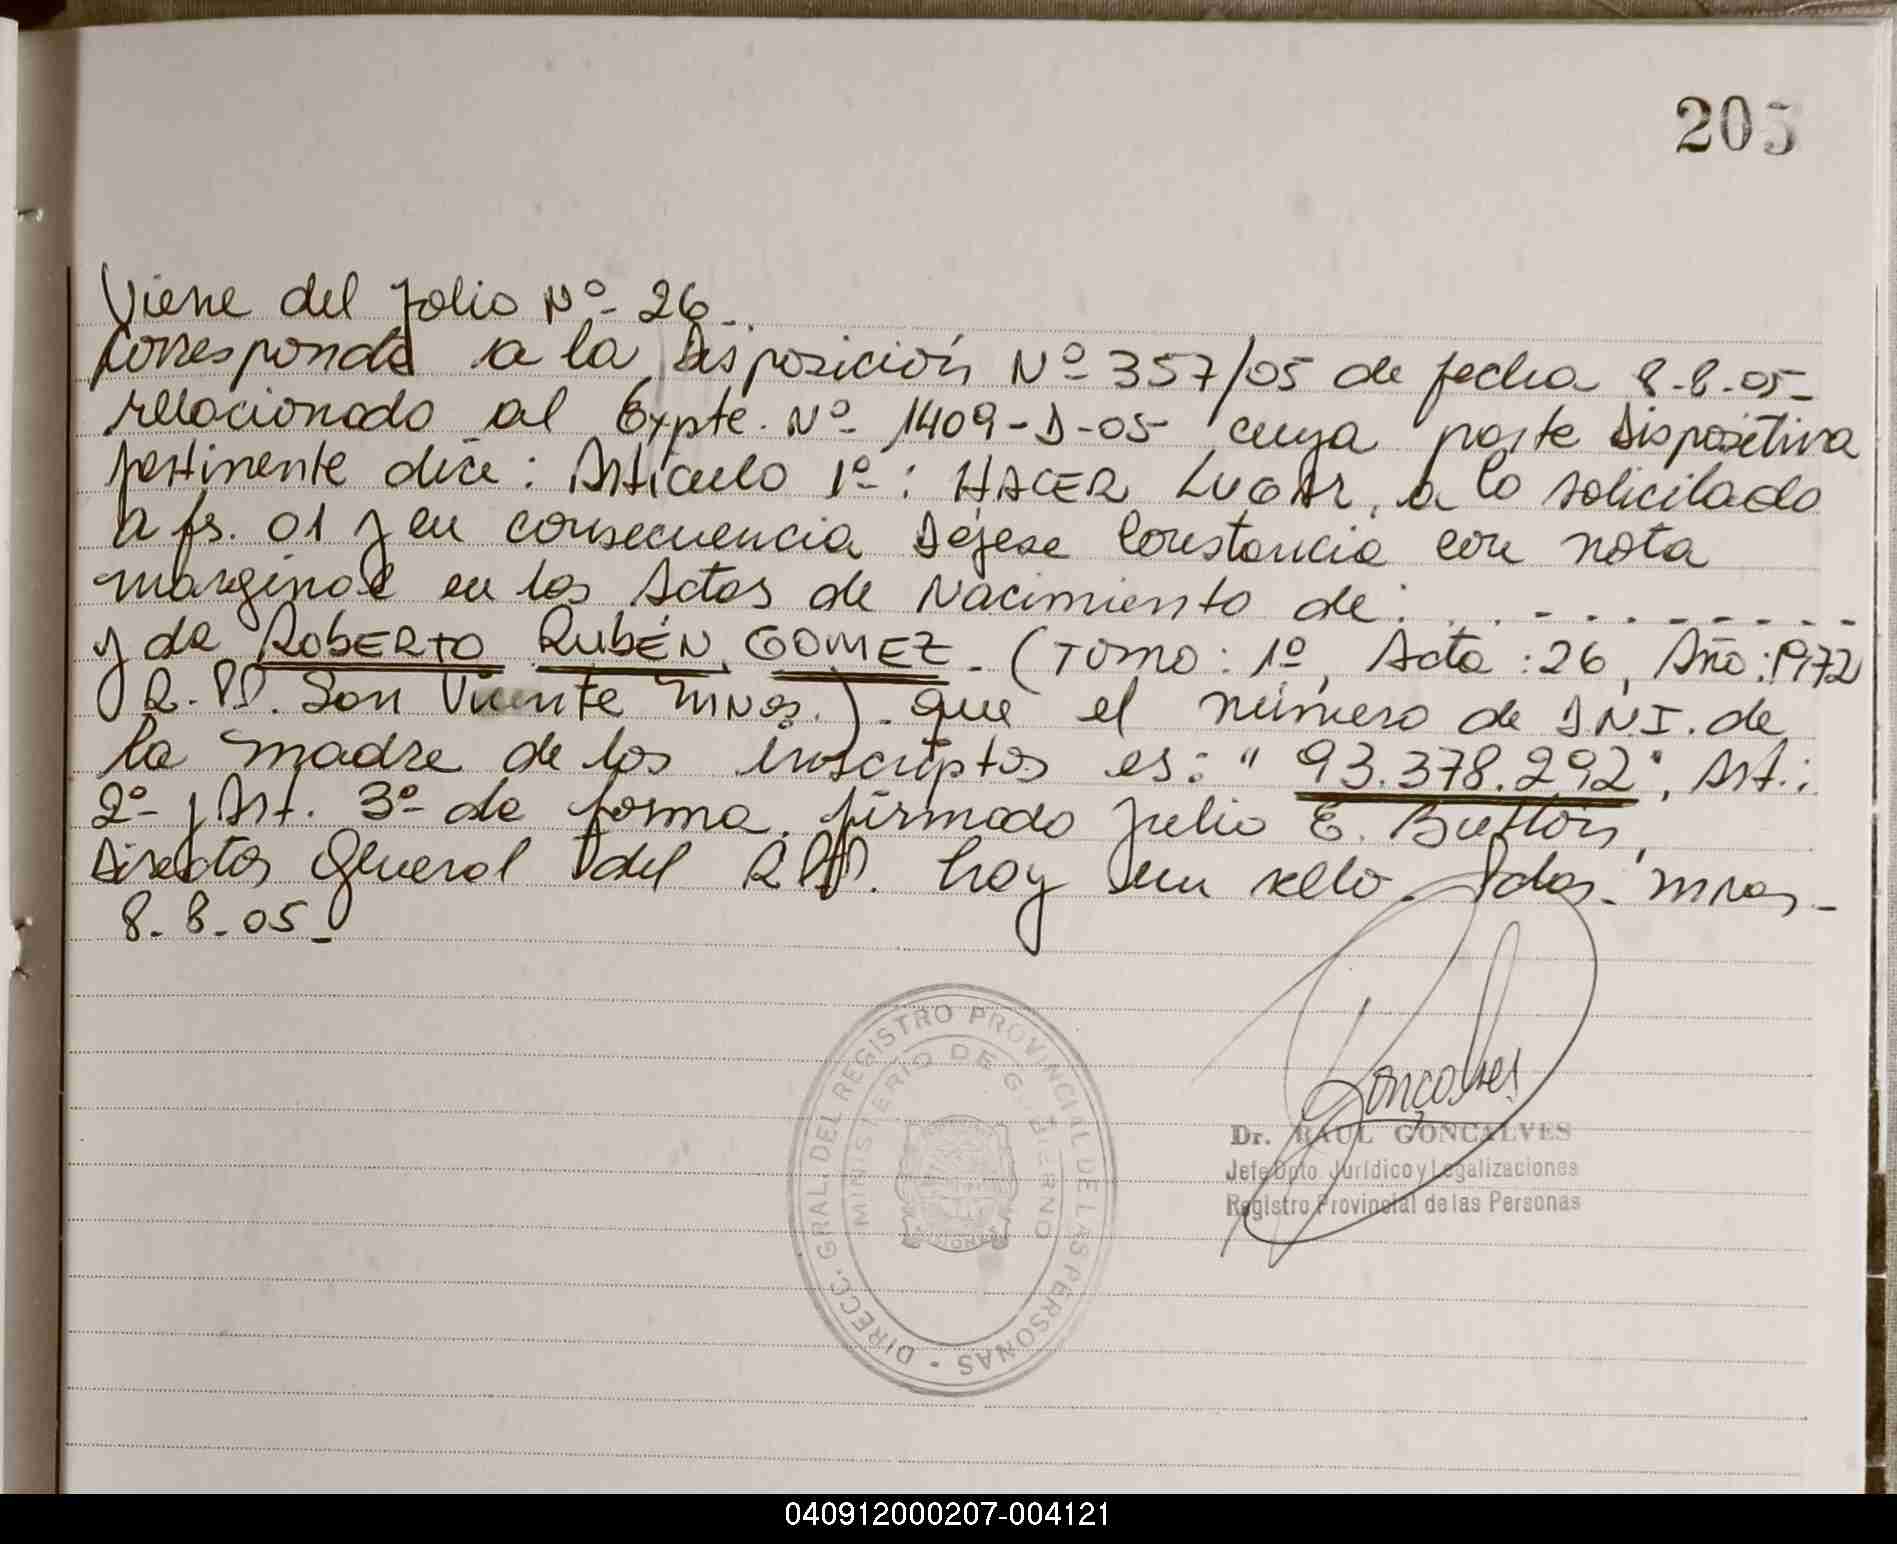 205
Viene del folio Nº 26_.
Corresponde a la Disposición Nº 357/05 de fecha 8-8-05_
relacionado al Expte. Nº 1409-D-05- cuya parte Dispositiva
pertinente dice: Artículo 1º: HACER LUGAR, a lo solicitado
a fs. 01 y en consecuencia Déjese Constancia con nota
marginal en las Actas de Nacimiento de: . . - - - - - - - - -
y de ROBERTO RUBÉN GOMEZ_ (Tomo: 1º, Acta: 26, Año: 1972
R.PP. San Vicente Mnes.). que el número de DNI. de
la madre de los inscriptos es: "93.378.292", Art.:
2º y Art. 3º de forma, firmado Julio E.
Director General del RPP. hay un sello. Pdas. Mnes_
8-8-05_
DIRECC. GRAL. DEL REGISTRO PROVINCIAL DE LAS PERSONAS
MINISTERIO DE GOBIERNO
MISIONES
Gonçalves
Dr. RAUL GONCALVES
Jefe Dpto. Jurídico y Legalizaciones
Registro Provincial de las Personas
040912000207-004121